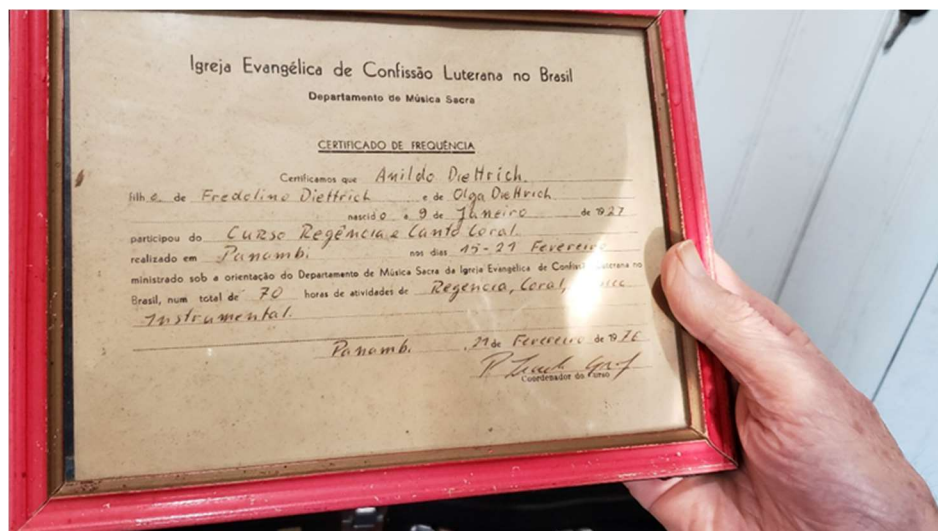 Igreja Evangélica de Confissão Luterana no Brasil
Departamento de Música Sacra
CERTIFICADO DE FREQUÊNCIA
Certificamos que Anildo Diettrich.
filho de Fredolino Diettrich e de Olga Diettrich
nascido a 9 de Janeiro de 1927
participou do Curso Regência e Canto Coral
realizado em Panambi nos dias 15-21 Fevereiro
ministrado sob a orientação do Departamento de Música Sacra da Igreja Evangélica de Confissão Luterana no
Brasil, num total de 70 horas de atividades de Regência, Coral,
Instrumental.
Panambi, 21 de Fevereiro de 1976
Coordenador do Curso